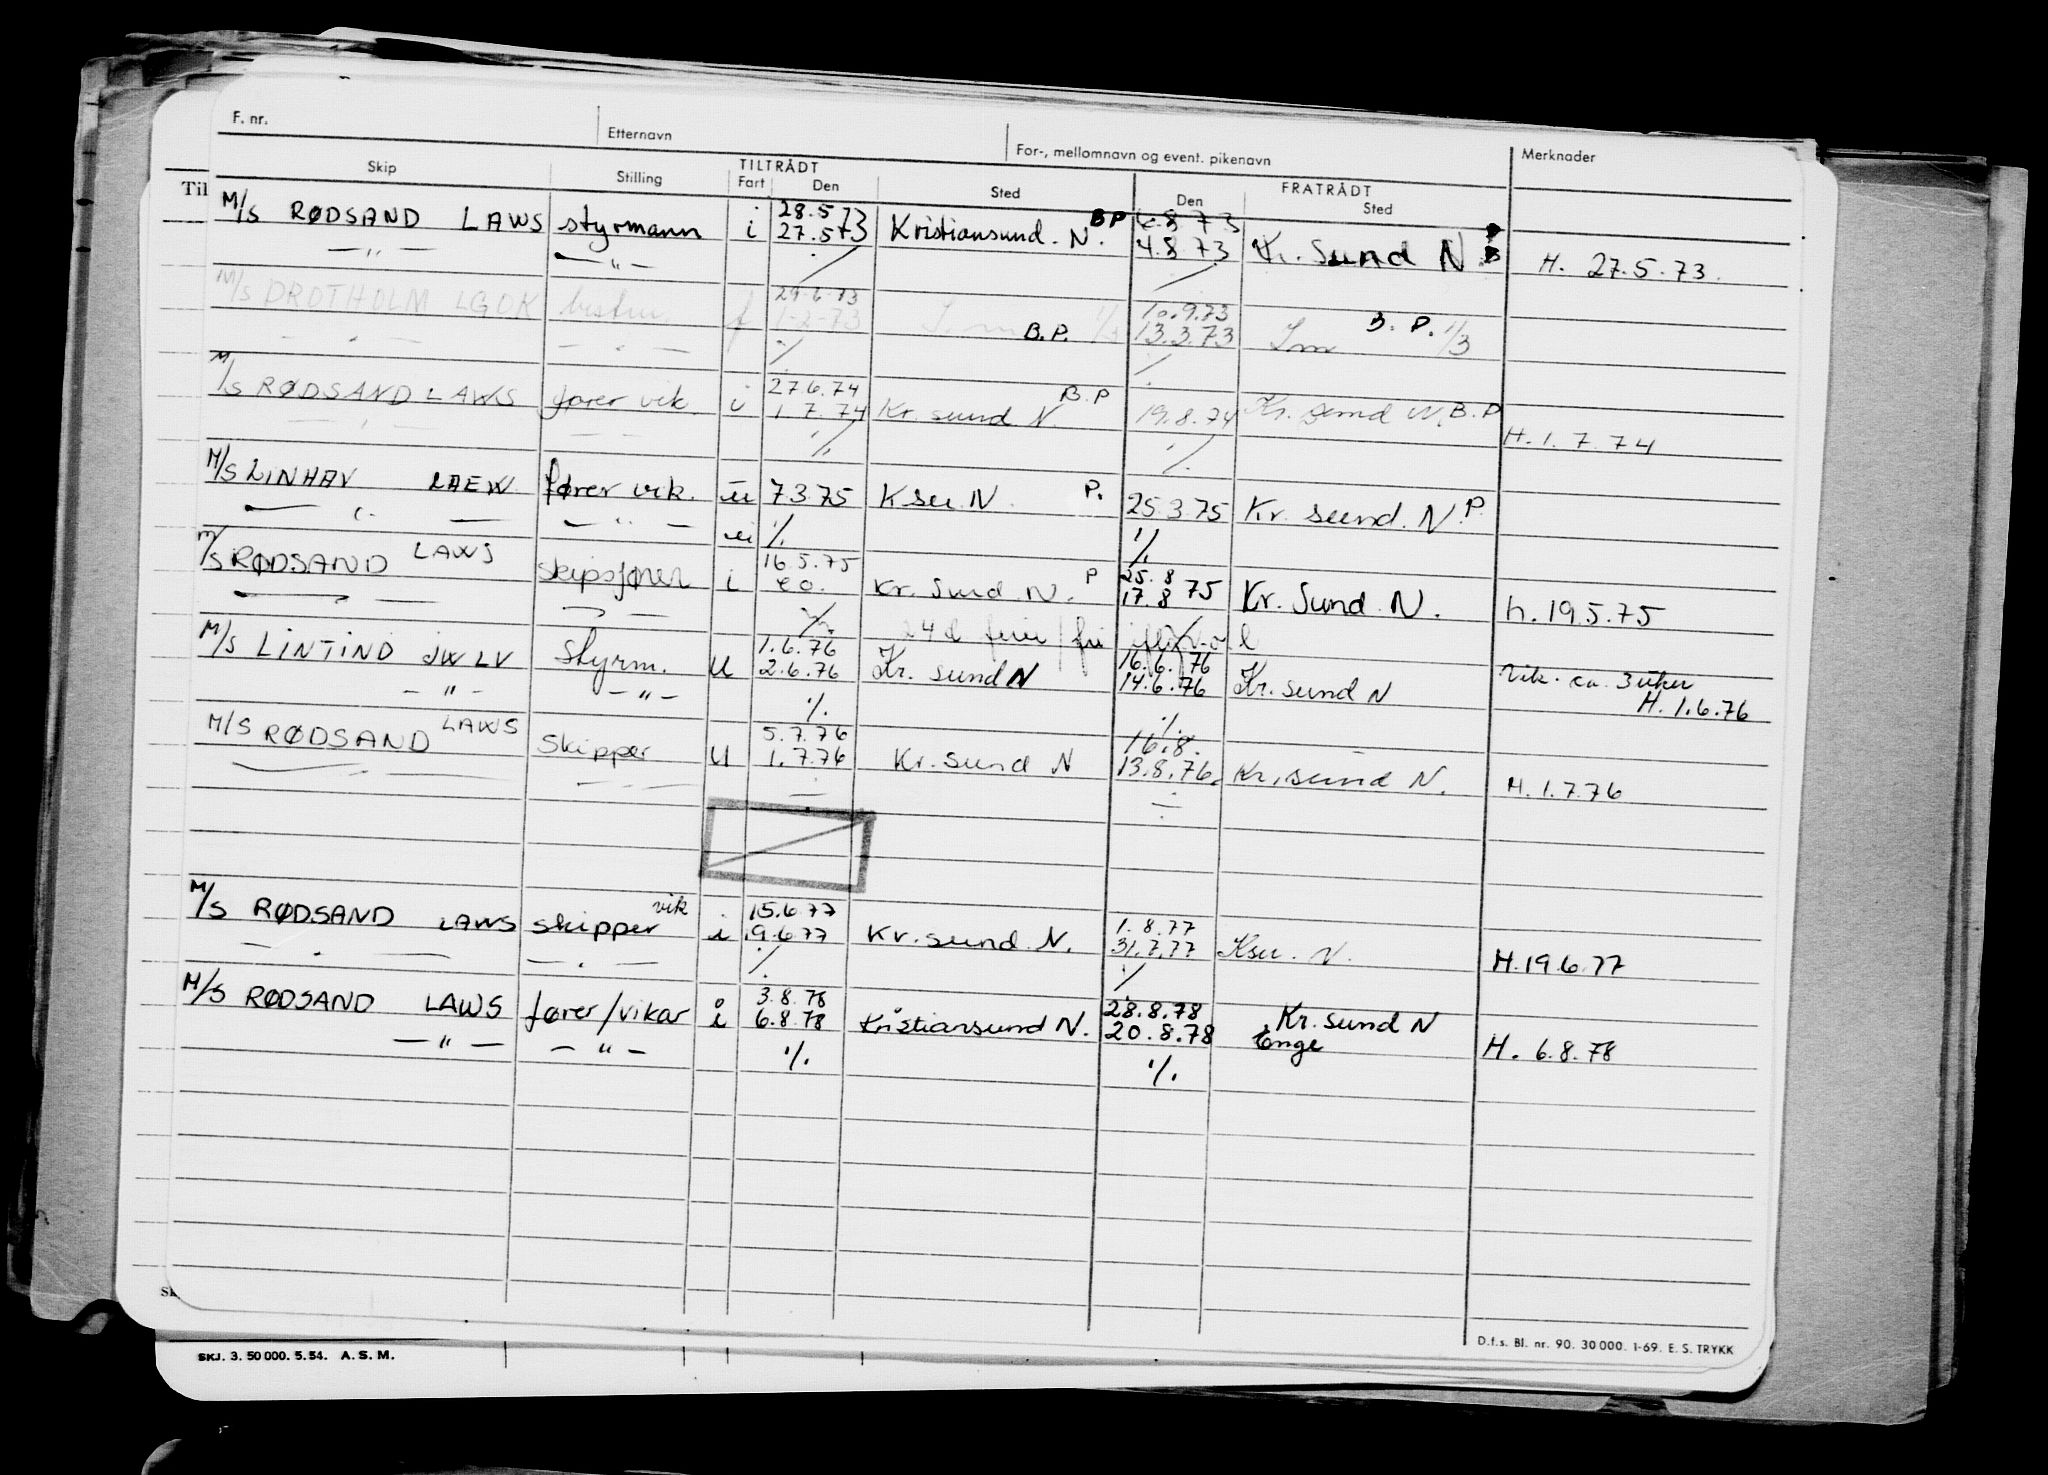 F. nr. Etternavn For-, mellomnavn og event. pikenavn Merknader
Skip Stilling TILTRÅDT Fart Den Sted FRATRÅDT Den Sted
Til
M/S RØDSAND LAWS styrmann i 28.5.73 27.5.73 Kristiansund. N. BP 6.8.73 4.8.73 Kr. Sund N H. 27.5.73.
— " — — " —
M/S DROTHOLM LGOK f 29.6.73 1-2-73 B.P. 10.9.73 13.3.73 B. P. 1/3
M/S RØDSAND LAWS fører vik. i 27.6.74 1.7.74 Kr. sund N. B.P 19.8.74 Kr. sund N. B.P H. 1.7.74
M/S LINHAV LAEW. fører vik. u 7.3.75 Ksu. N. P. 25.3.75 Kr. sund. N. P.
— " — — " —
M/S RØDSAND LAWS skipsfører i 16.5.75 Kr. Sund. N. P 25.8 17.8 75 Kr. Sund. N. h. 19.5.75
M/S LINTIND JWLV styrm. U 1.6.76 2.6.76 Kr. sund N 16.6.76 14.6.76 Kr. sund N Vik. ca. 3 uker H. 1.6.76
— " — — " —
M/S RØDSAND LAWS skipper U 5.7.76 1.7.76 Kr. sund N 16.8. 13.8.76. Kr. sund N. H. 1.7.76
M/S RØDSAND LAWS skipper vik i 15.6.77 19.6.77 Kr. sund. N. 1.8.77 31.7.77 Ksu. N. H. 19.6.77
M/S RØDSAND LAWS fører/vikar i 3.8.78 6.8.78 Kristiansund N. 28.8.78 20.8.78 Kr. sund N Enge H. 6.8.78
— " — — " — ./. ./.
D.f.s. Bl. nr. 90. 30 000. 1-69. E. S. TRYKK
SKJ. 3. 50 000. 5. 54. A. S. M.